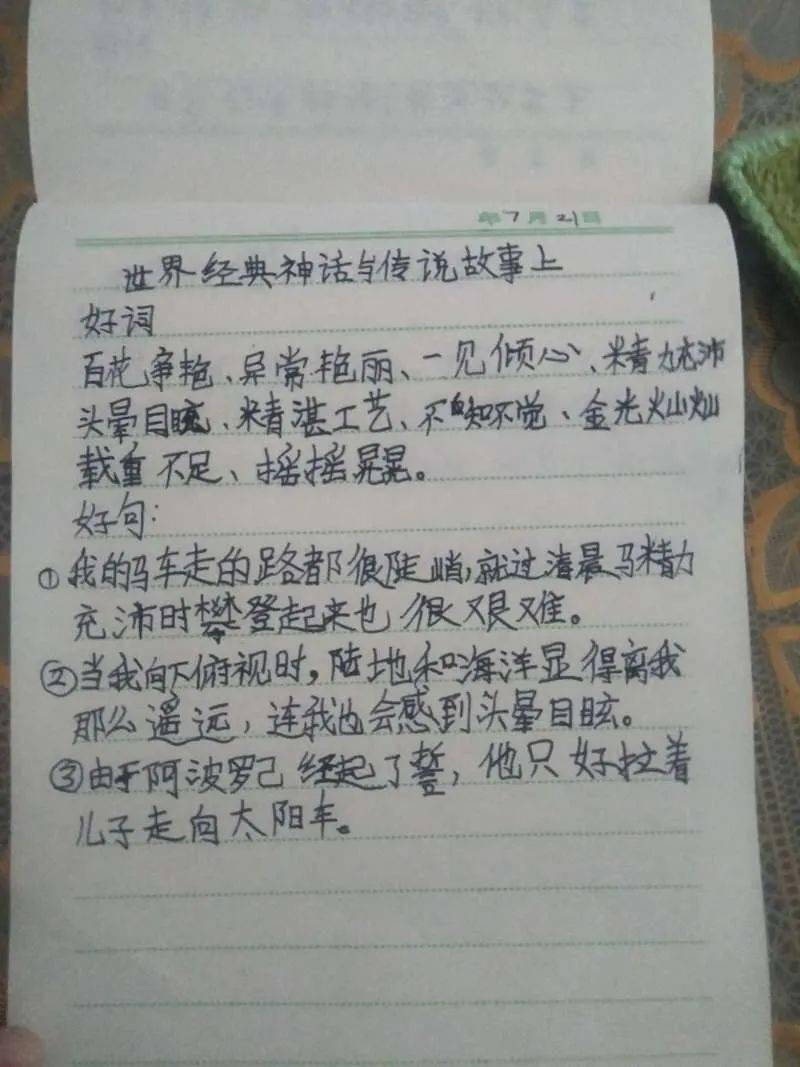 年7月21日
世界经典神话与传说故事上
好词
百花争艳、异常艳丽、一见倾心、精力充沛
头晕目眩、精湛工艺、不知不觉、金光灿灿
载重不足、摇摇晃晃。
好句：
①我的马车走的路都很陡峭,就过清晨马精力
充沛时攀登起来也很艰难。
②当我向下俯视时，陆地和海洋显得离我
那么遥远，连我也会感到头晕目眩。
③由于阿波罗己经起了誓，他只好拉着
儿子走向太阳车。